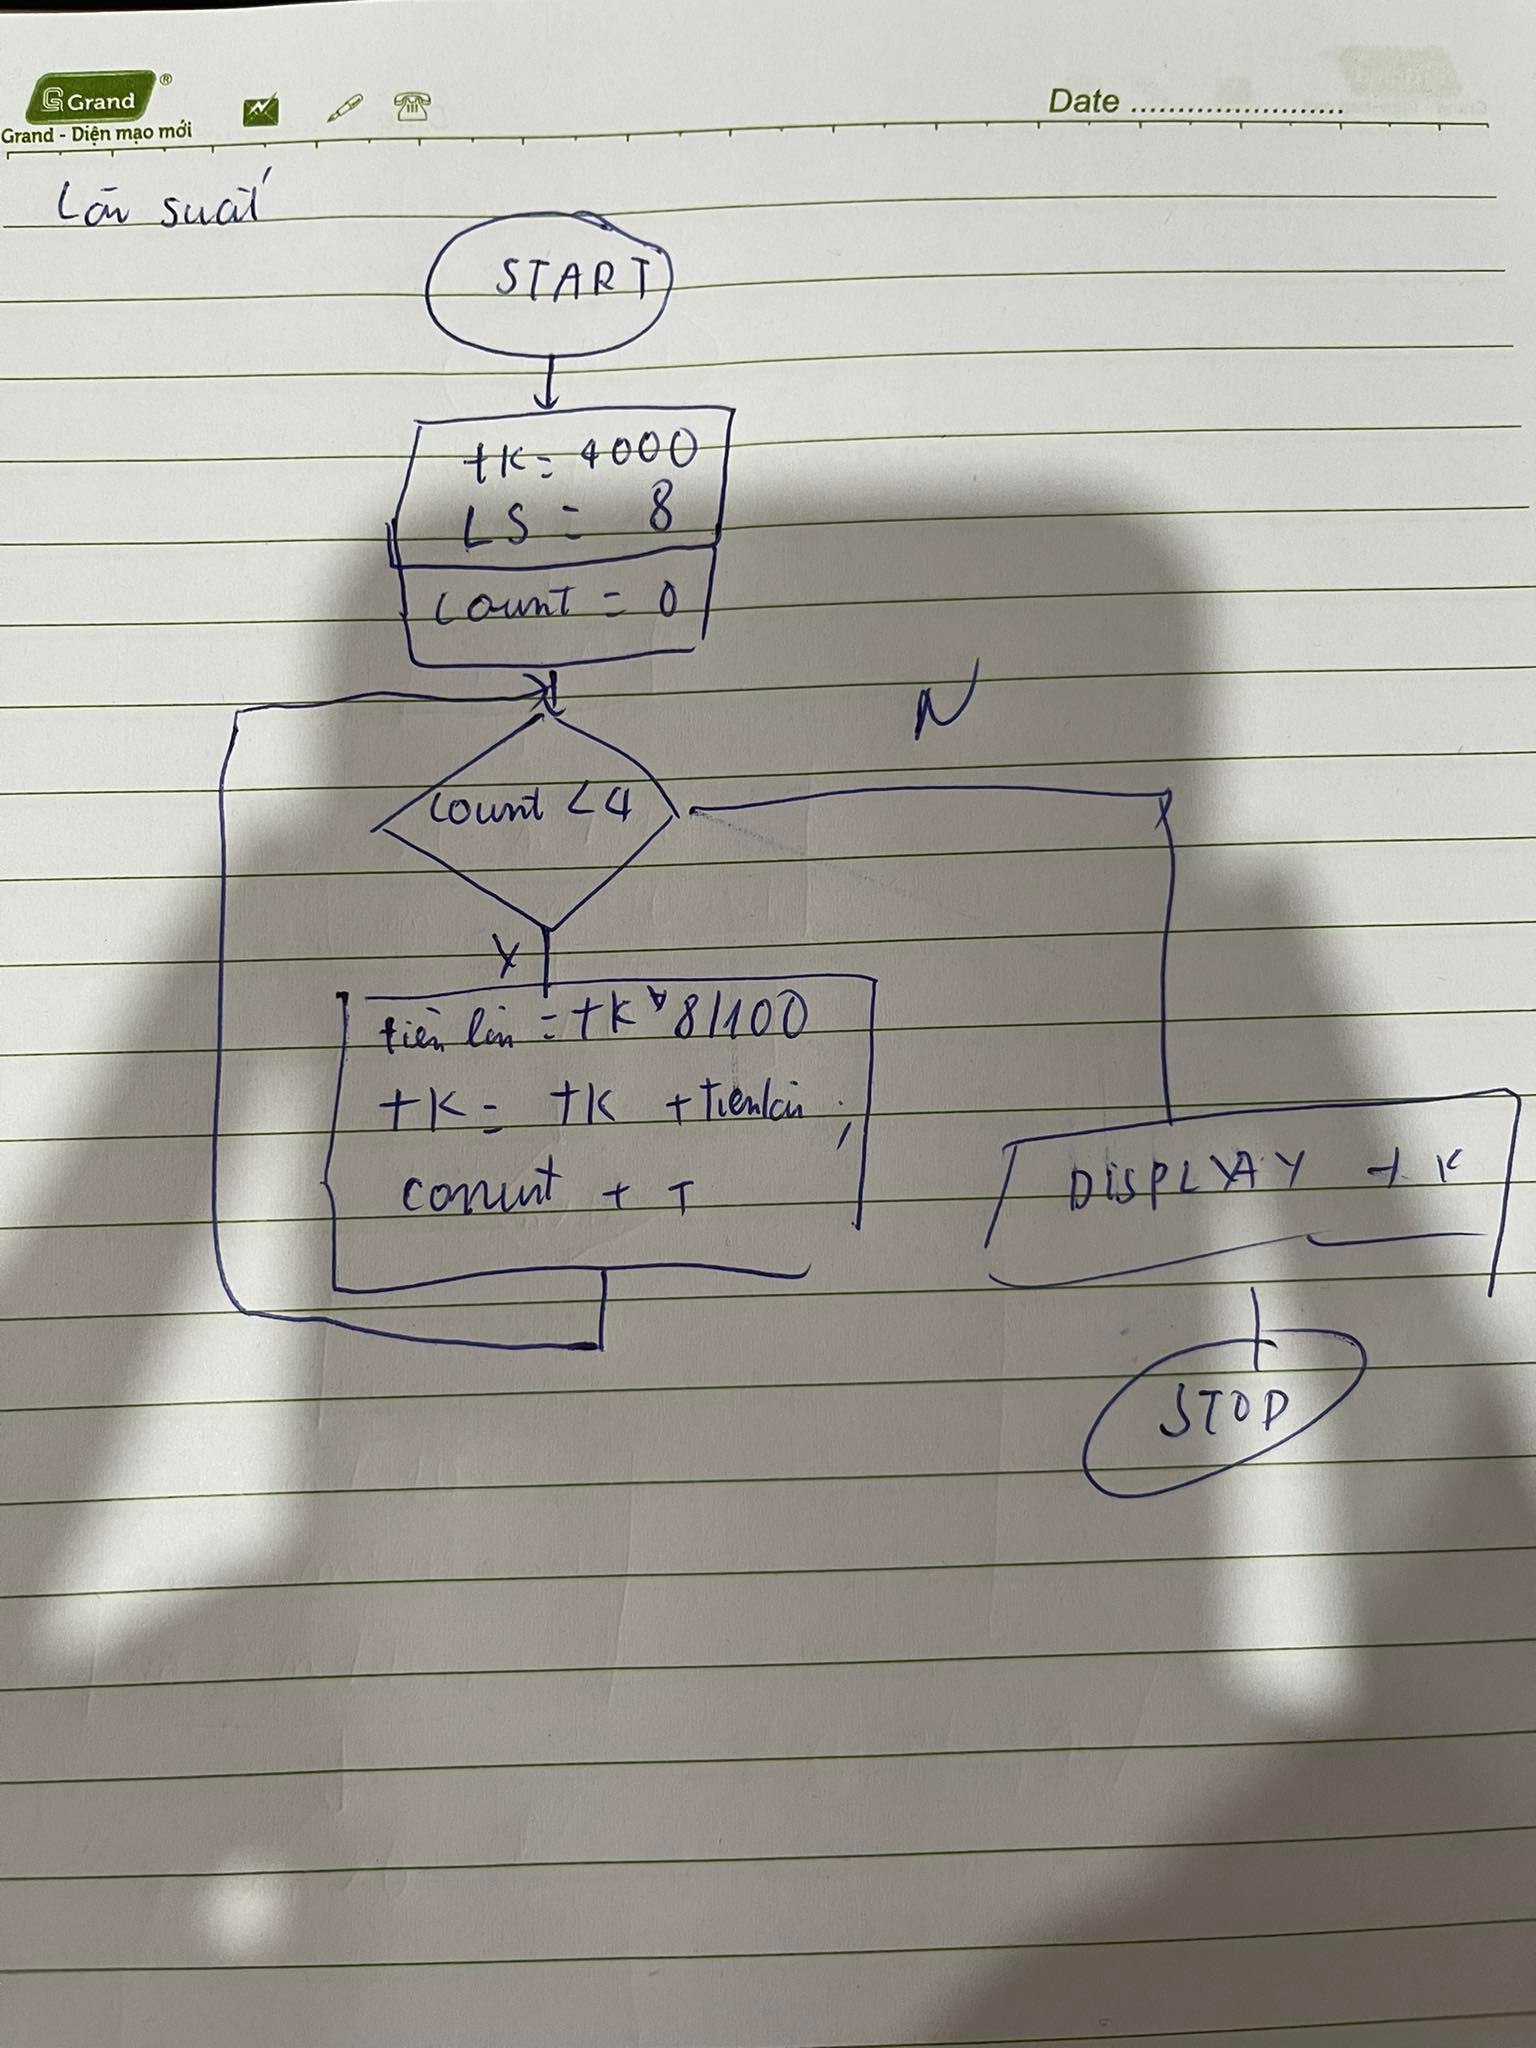 Grand®
Grand - Diện mạo mới
Date ........................
Lãi suất
START
tK = 4000
LS = 8
count = 0
count < 4
N
Y
tiền lãi = tK * 8/100
tK = tK + Tiền lãi ;
conunt + T
DiSPLYAY tK
STOP